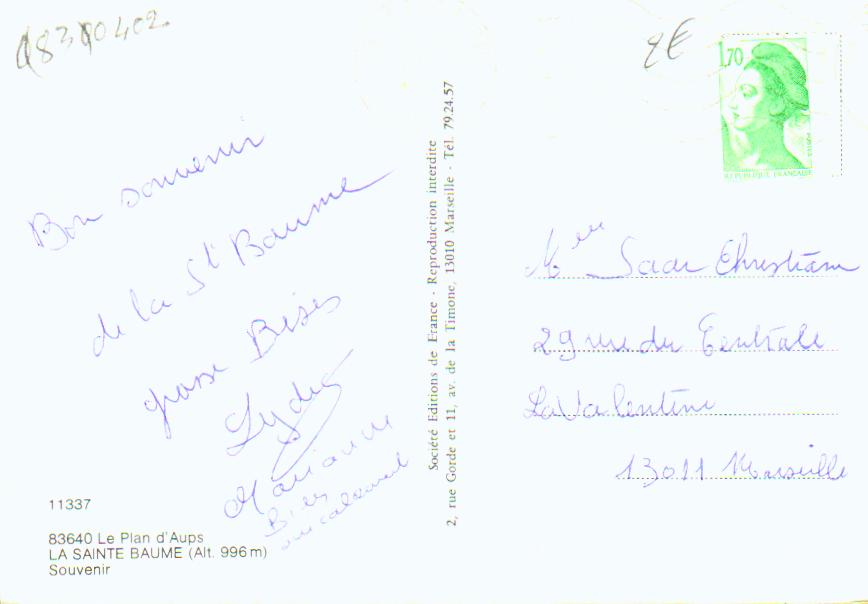 8310402
2€
1,70
POSTES
REPUBLIQUE FRANÇAISE
Bon souvenir
de la St Baume
grosse Bises
Lydie
Marianne
Bises
11337
83640 Le Plan d'Aups
LA SAINTE BAUME (Alt. 996 m)
Souvenir
Société Editions de France - Reproduction interdite
2, rue Gorde et 11, av. de la Timone, 13010 Marseille - Tél. 79.24.57
Saar Christiane
29 rue du Centrale
La Valentine
13011 Marseille